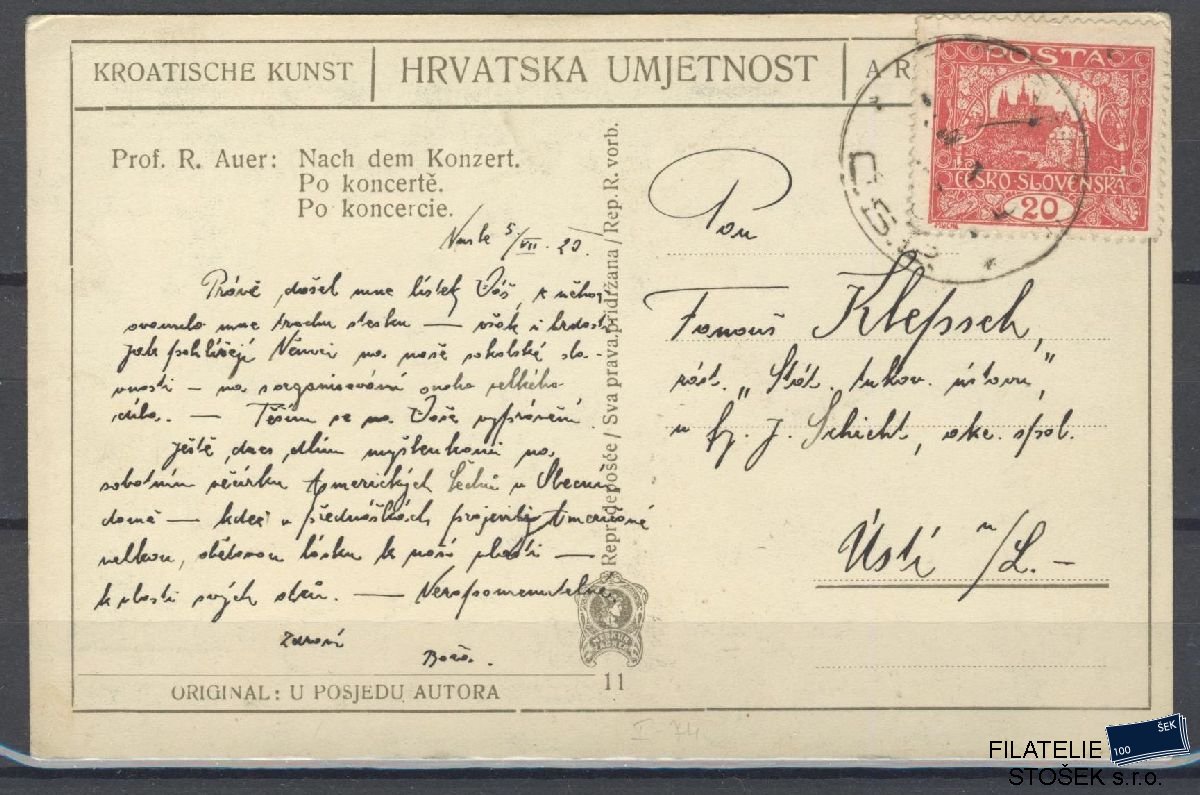 KROATISCHE KUNST
HRVATSKA UMJETNOST
AR
Prof. R. Auer: Nach dem Konzert.
Po koncertě.
Po koncercie.
5/VII. 20
Právě došel mne lístek Váš, z něhož
mne trochu stesku — však i hrdosti
jak pohlížejí Němci na naše sokolské sla-
vnosti — na zorganisování onoho velkého
díla. — Těším se na Vaše vyprávění.
Ještě dnes dlím myšlenkami na
sobotním večírku Amerických Čechů v Obecním
domě — kdež v přednáškách projevili Američané
velkou, lásku k naší vlasti —
k vlasti svých otců. — Nezapomenutelné.
Zdraví
ORIGINAL: U POSJEDU AUTORA
Repr. deposée / Sva prava pridržana / Rep. R. vorb.
11
POSTA
ČESKO-SLOVENSKÁ
20
Pan
Fanouš Klepsch,
„Stát. ústavu"
u fy. J. Schicht, akc. spol.
Ústí n/L.-
I-74
FILATELIE
STOŠEK s.r.o.
100
ŠEK